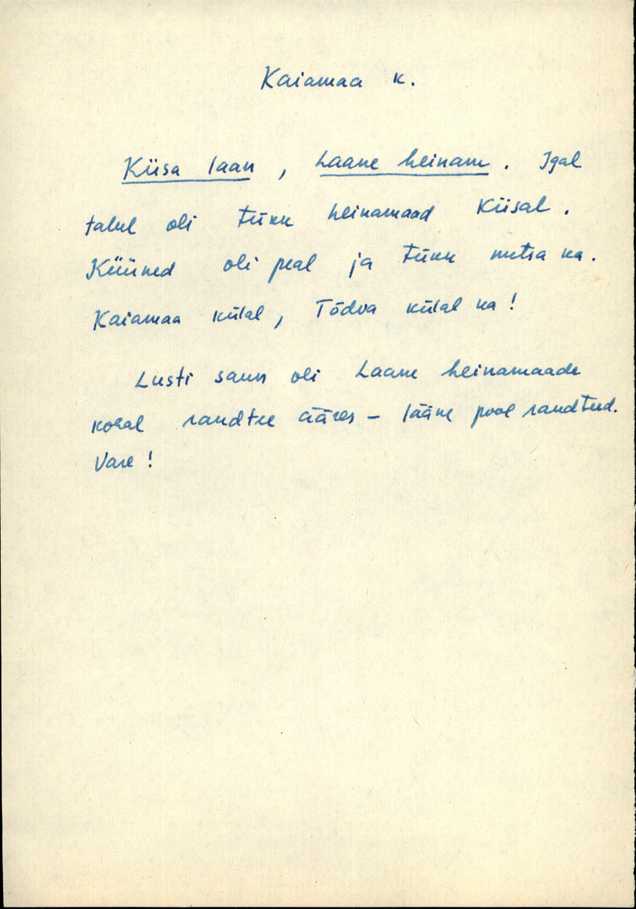 Kaiamaa k.
Kiisa laan, Laane heinam. Igal
talul oli tükk heinamaad Kiisal.
Küüned oli peal ja tükk metsa ka.
Kaiamaa külal, Tõdva külal ka!
Lusti saun oli Laane heinamaade
kohal raudtee ääres – lääne pool raudteed.
Vare!